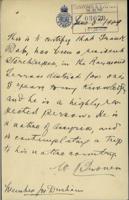 This is to certify that Frank
Baby, has been a resident
Storekeeper, in the Raymond
Terrace district for over
8 years to my knowledge,
and he is a highly res-
pected person. He is
a native of Assyria, and
is contemplating a trip
to his native country.
Member for Durham